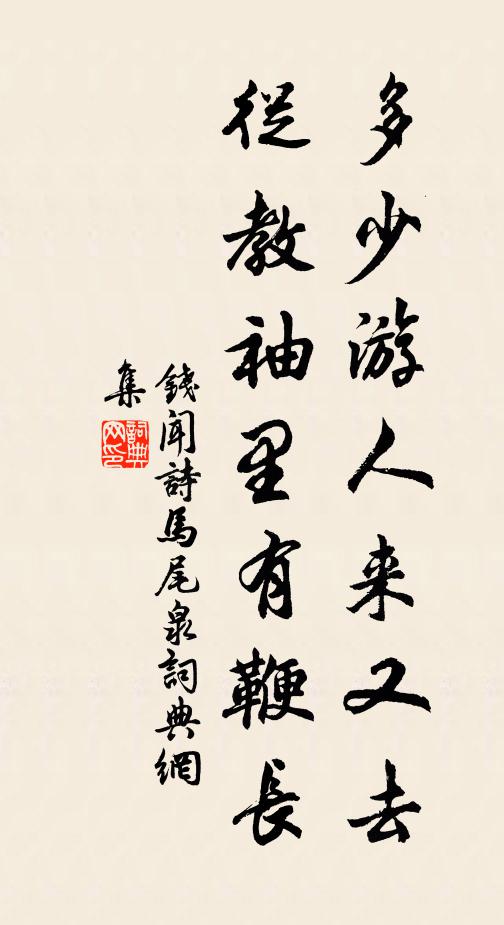 多少游人来又去
從教袖里有鞭長
錢聞詩馬尾泉詞典網
集
詞典网印